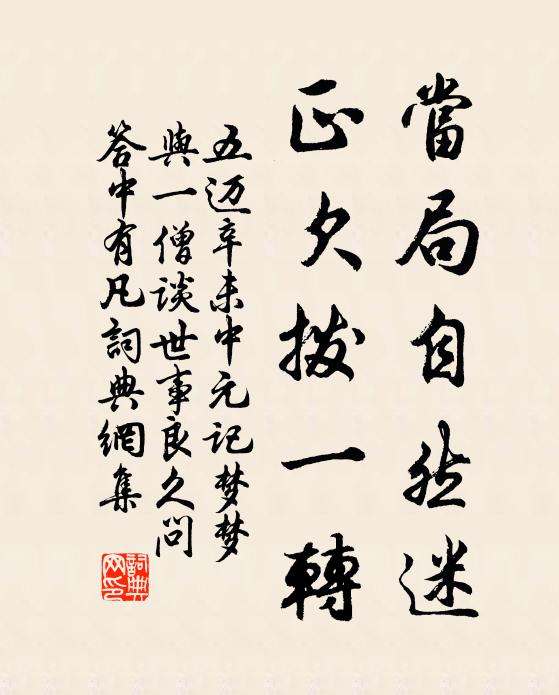 當局自然迷
正欠拨一轉
五迈辛未中元记梦梦
與一僧談世事良久问
答中有凡詞典網集
詞典網印